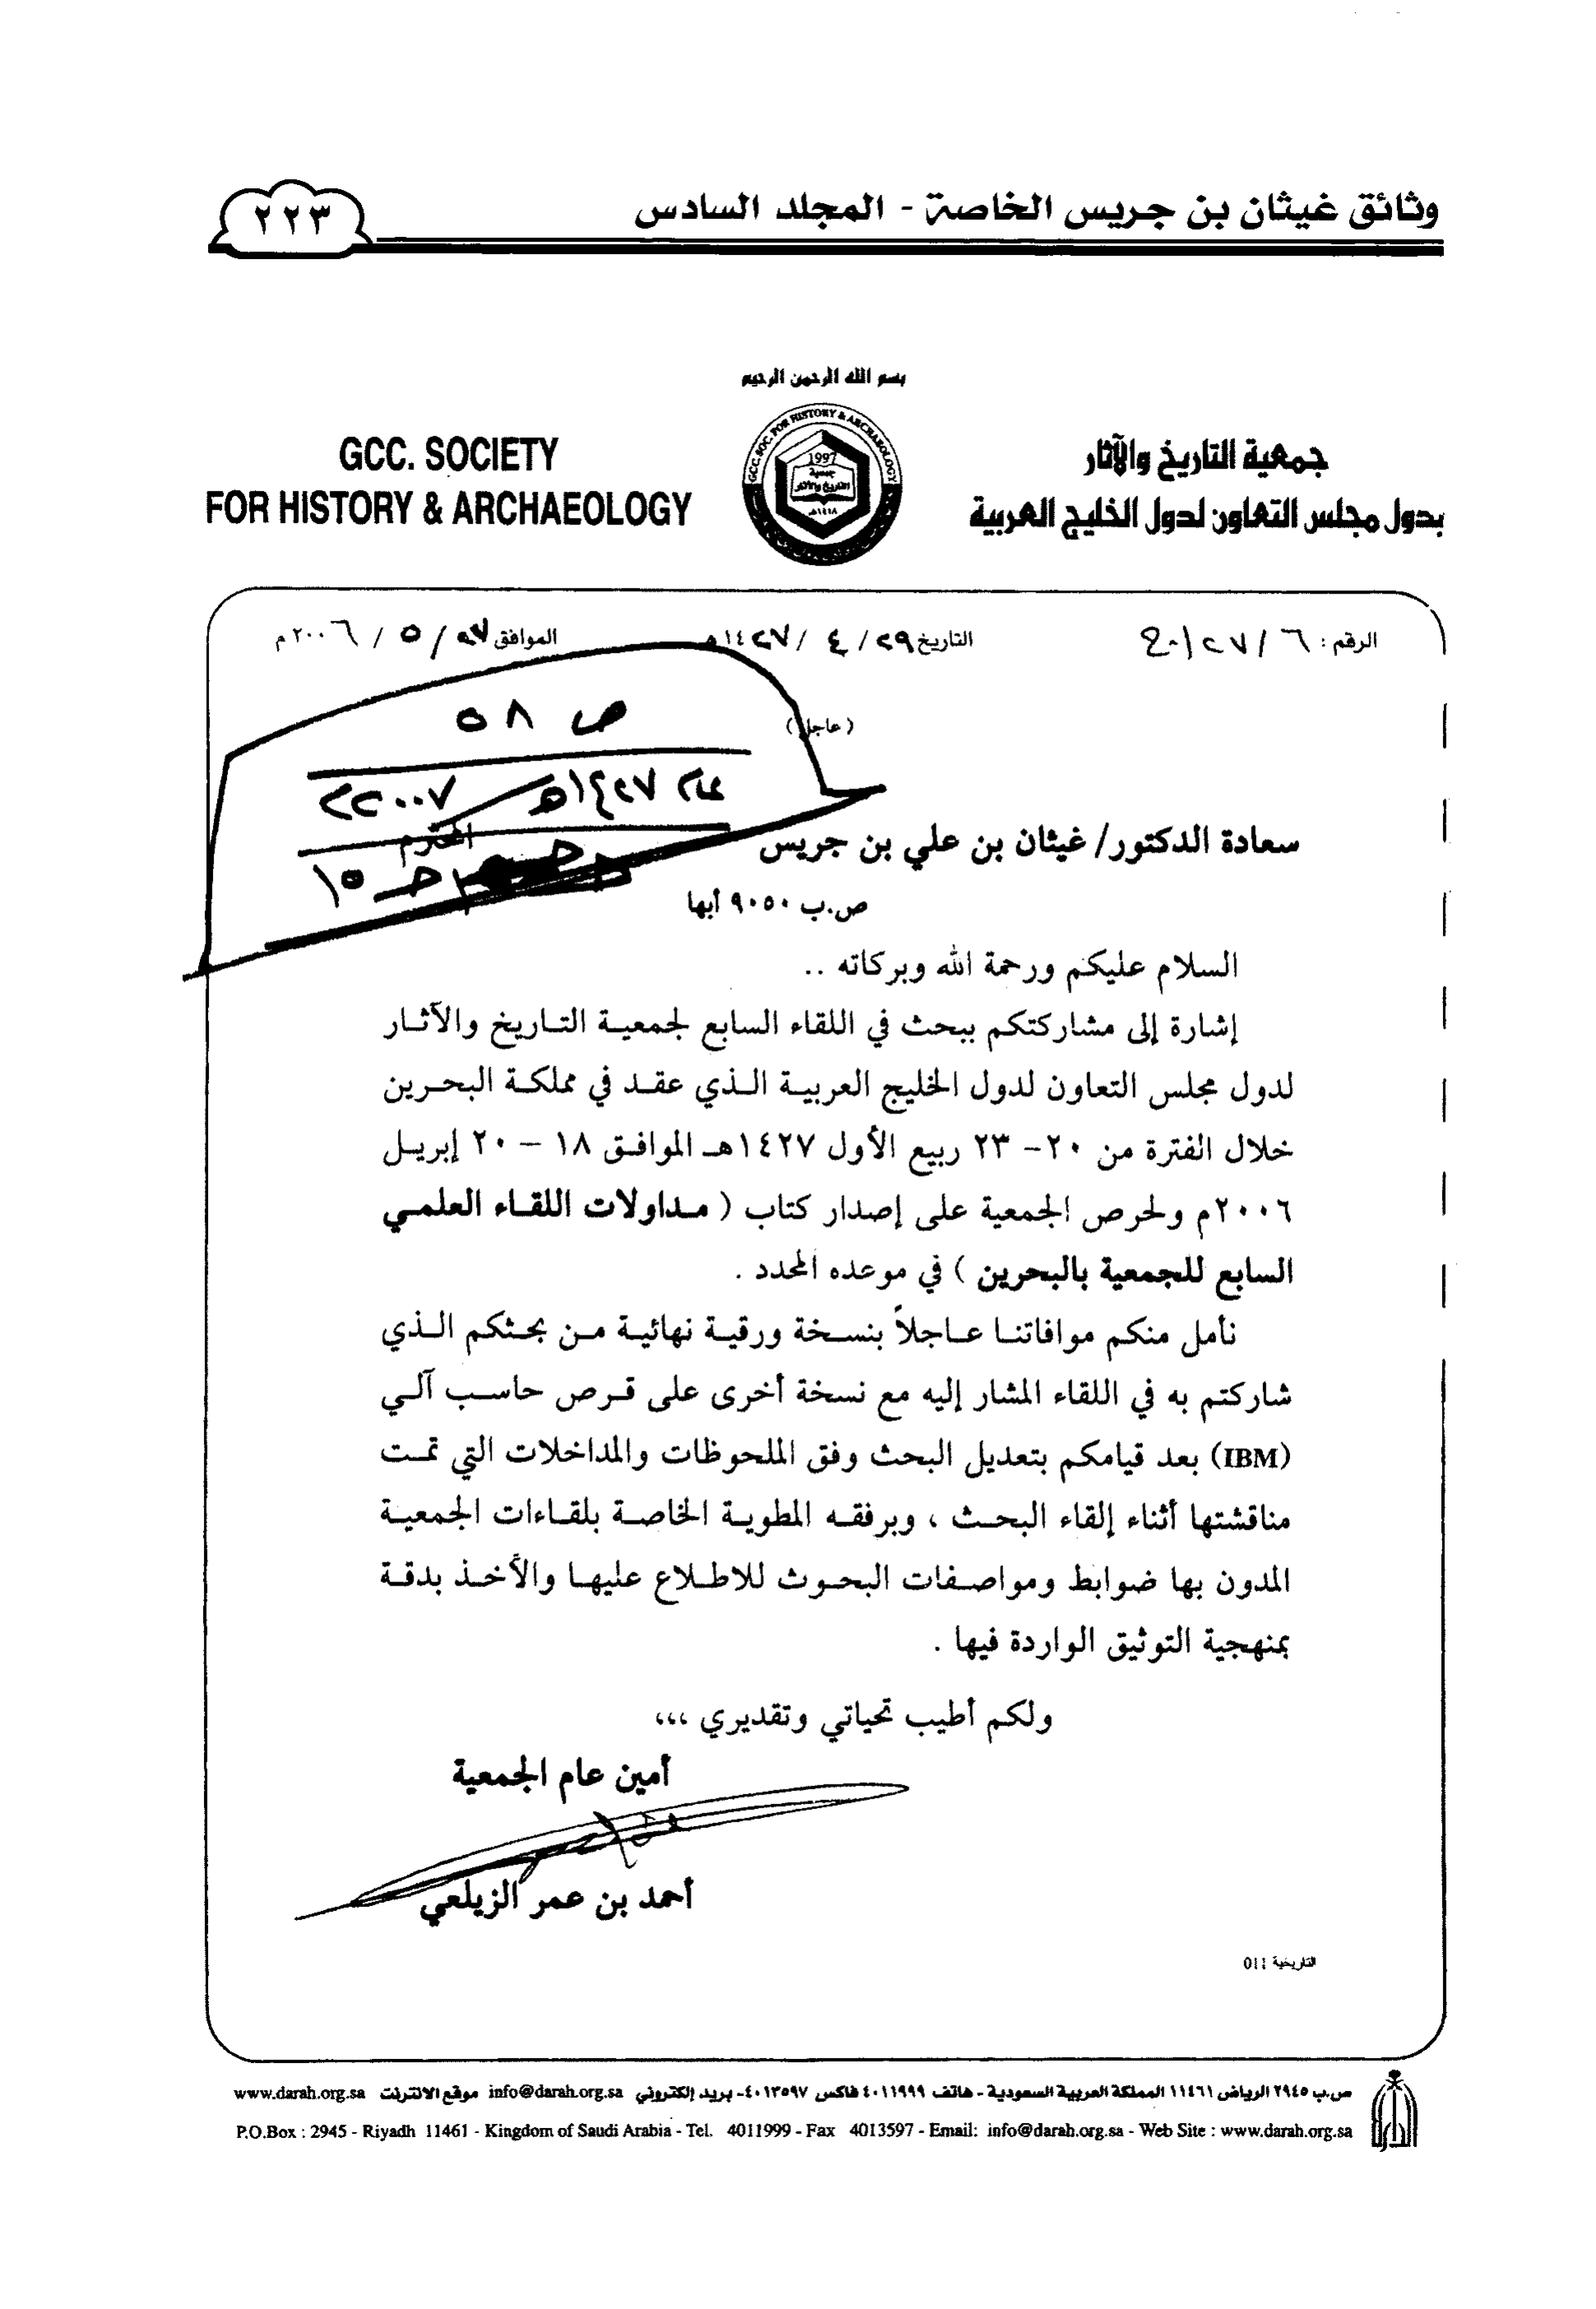 وثائق غيثان بن جريس الخاصة - المجلد السادس
٢٢٣
بسم الله الرحمن الرحيم
GCC. SOCIETY
FOR HISTORY & ARCHAEOLOGY
GCC. SOC. FOR HISTORY & ARCHAEOLOGY
1997
جمعية
التاريخ والآثار
١٤١٨هـ
جمعية التاريخ والآثار
بدول مجلس التعاون لدول الخليج العربية
الرقم :
التاريخ ٢٩ / ٤ / ١٤٢٧هـ
الموافق ٢٧ / ٥ / ٢٠٠٦م
(عاجل)
ص ٥٨
عام ١٤٢٧هـ / ٢٠٠٧م
سعادة الدكتور/ غيثان بن علي بن جريس المحترم
ص.ب ٩٠٥٠ أبها
السلام عليكم ورحمة الله وبركاته ..
إشارة إلى مشاركتكم ببحث في اللقاء السابع لجمعية التاريخ والآثار
لدول مجلس التعاون لدول الخليج العربية الذي عقد في مملكة البحرين
خلال الفترة من ٢٠- ٢٣ ربيع الأول ١٤٢٧هـ الموافق ١٨ – ٢٠ إبريل
٢٠٠٦م ولحرص الجمعية على إصدار كتاب ( مداولات اللقاء العلمي
السابع للجمعية بالبحرين ) في موعده المحدد .
نأمل منكم موافاتنا عاجلاً بنسخة ورقية نهائية من بحثكم الذي
شاركتم به في اللقاء المشار إليه مع نسخة أخرى على قرص حاسب آلي
(IBM) بعد قيامكم بتعديل البحث وفق الملحوظات والمداخلات التي تمت
مناقشتها أثناء إلقاء البحث ، وبرفقه المطوية الخاصة بلقاءات الجمعية
المدون بها ضوابط ومواصفات البحوث للاطلاع عليها والأخذ بدقة
بمنهجية التوثيق الواردة فيها .
ولكم أطيب تحياتي وتقديري ،،،
أمين عام الجمعية
أحمد بن عمر الزيلعي
التاريخية 011
ص.ب ٢٩٤٥ الرياض ١١٤٦١ المملكة العربية السعودية - هاتف ٤٠١١٩٩٩ فاكس ٤٠١٣٥٩٧- بريد إلكتروني info@darah.org.sa موقع الانترنت www.darah.org.sa
P.O.Box : 2945 - Riyadh 11461 - Kingdom of Saudi Arabia - Tel. 4011999 - Fax 4013597 - Email: info@darah.org.sa - Web Site : www.darah.org.sa